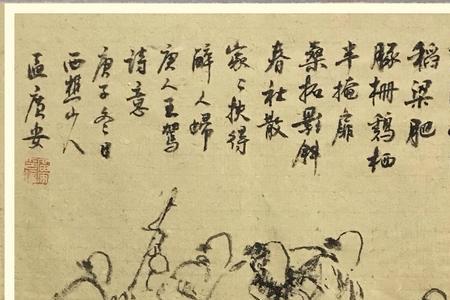 稻梁肥
豚柵鷄栖
半掩扉
桑柘影斜
春社散
家々扶得
醉人歸
唐人王駕
詩意
庚子冬日
西樵山人
區廣安